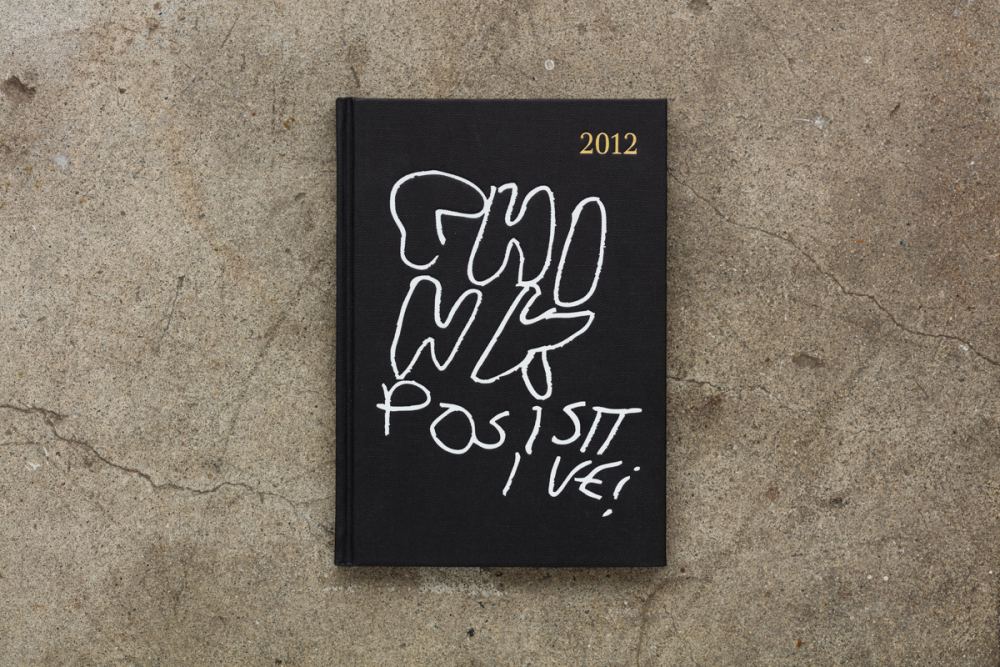 2012
THI
NK
POSISTT
IVE!